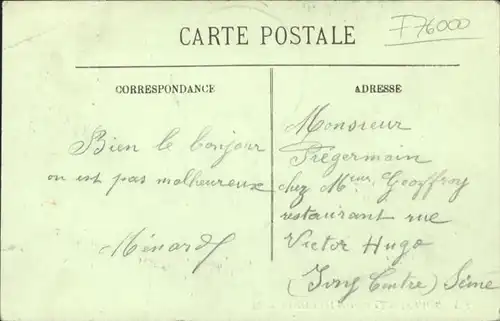 CARTE POSTALE
F76000
CORRESPONDANCE
ADRESSE
Bien le bonjour
on est pas malheureux
Ménard
Monsieur
Pregermain
chez Meur Geoffroy
restaurant rue
Victor Hugo
(Ivry Centre) Seine